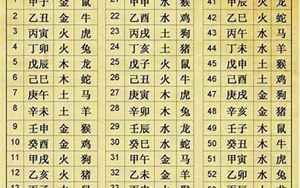 1 甲子 金 鼠 甲申 水 猴 甲辰 火 龙
2 乙丑 金 牛 22 乙酉 水 鸡 42 乙巳 火 蛇
3 丙寅 火 虎 23 丙戌 土 狗 43 丙午 水 马
4 丁卯 火 兔 24 丁亥 土 猪 44 丁未 水 羊
5 戊辰 木 龙 25 戊子 火 鼠 45 戊申 土 猴
6 己巳 木 蛇 26 己丑 火 牛 46 己酉 土 鸡
7 庚午 土 马 27 庚寅 木 虎 47 庚戌 金 狗
8 辛未 土 羊 28 辛卯 木 兔 48 辛亥 金 猪
9 壬申 金 猴 29 壬辰 水 龙 49 壬子 木 鼠
10 癸酉 金 鸡 30 癸巳 水 蛇 50 癸丑 木 牛
11 甲戌 火 狗 31 甲午 金 马 51 甲寅 水 虎
12 乙亥 火 猪 32 乙未 金 羊 52 乙卯 水 兔